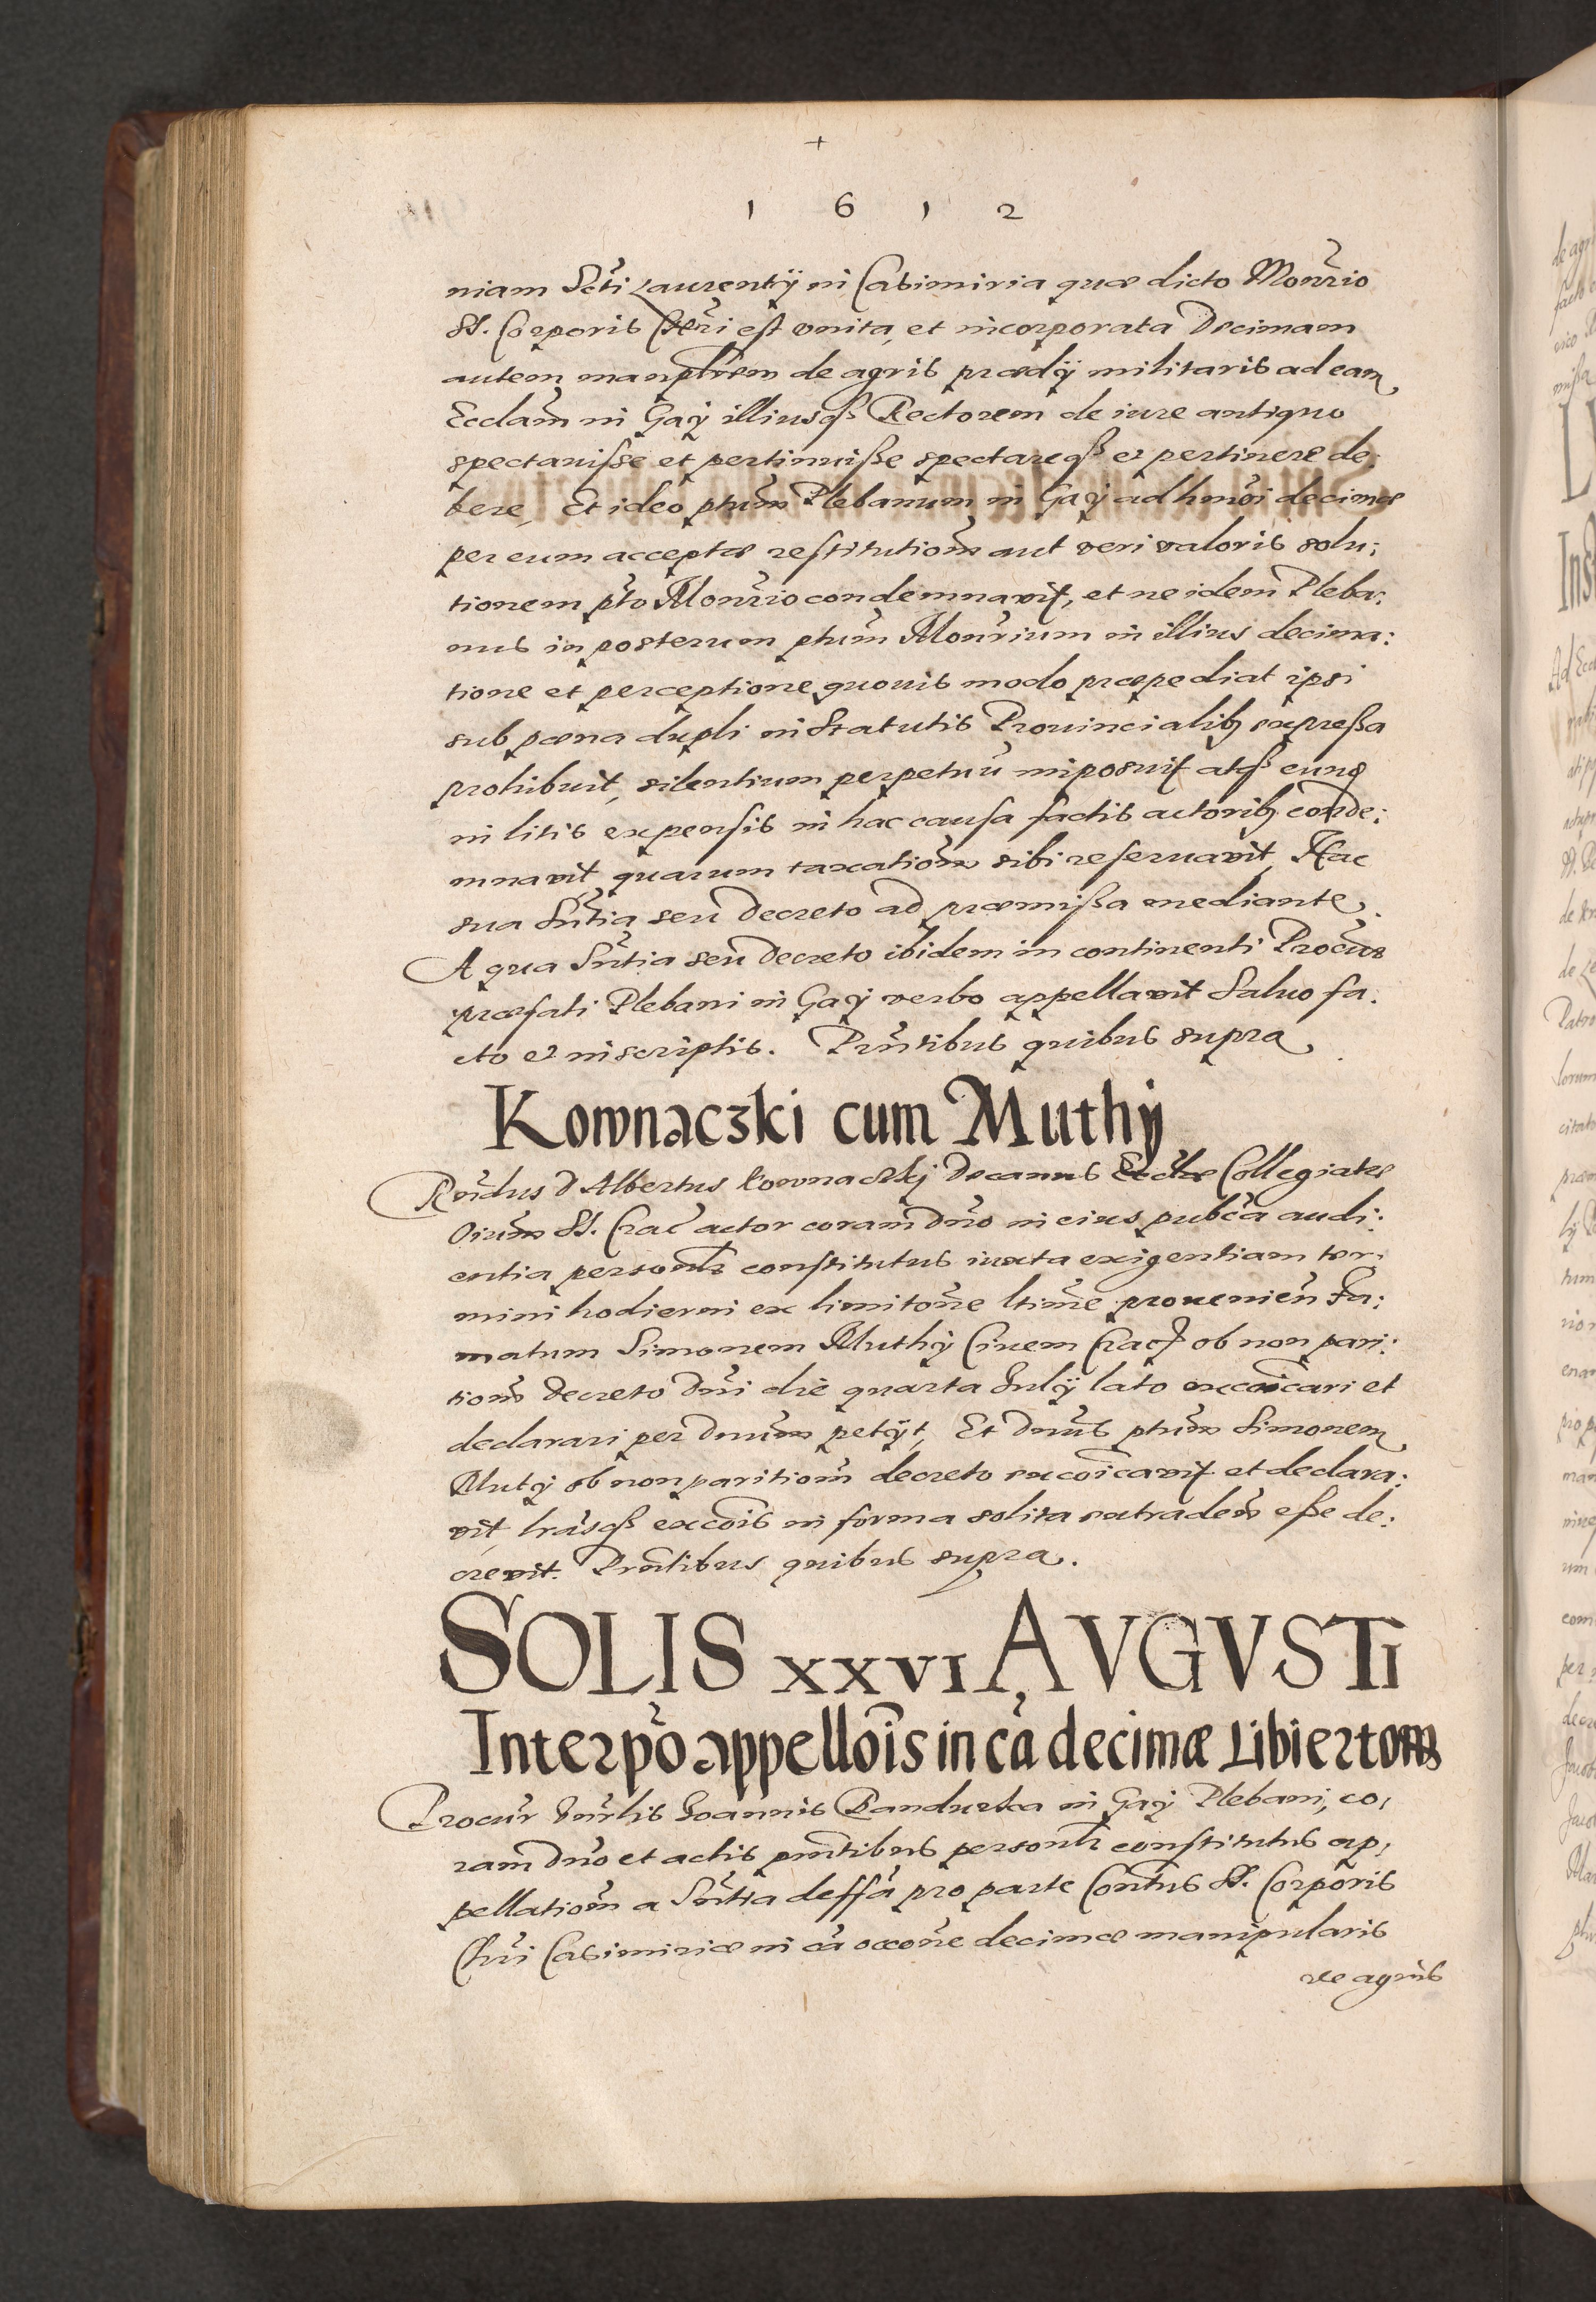 +
1 6 1 2
niam Scti Laurentÿ in Casimiria quæ dicto Monrio
SS. Corporis Chri est vnita, et incorporata Decimam
autem manplrem de agris prædÿ militaris ad eam
Ecclam in Gaÿ illiusqꝫ Rectorem de iure antiquo
spectauiſse et pertinuiße spectareqꝫ et pertinere de:
bere, Et ideo pham Plebanum in Gaÿ ad hmoi decimæ
per eum acceptæ restitutiom aut veri valoris solu:
tionem pto Monrio condemnavit, et ne idem Pleba:
nus in posterum phum Monrium in illius decima:
tione et perceptione quouis modo præpediat ipsi
sub pœna dupli in Statutis Prouincialibꝫ expreßa
prohibuit, silentium perpetuū imposuit atqꝫ eund
in litis expensis in hac causa factis actoribꝫ conde:
mnavit quarum taxatiom sibi reseruavit, Hac
sua Sntia seu Decreto ad præmißa mediante.
A qua Sntia seu Decreto ibidem in continenti Procur
præfati Plebani in Gaÿ verbo appellavit Saluo fa:
cto et in scriptis. Pntibus quibus supra
Kownaczki cum Muthÿ
Rndus D Albertus Kownaczkj Decanus Eccłæ Collegiatæ
Oium SS. Crac actor coram Dno in eius publca audi:
entia personlr constitutus iuxta exigentiam ter:
mini hodierni ex limitone ltime prouenien Fa:
matum Simonem Muthÿ Ciuem Crac ob non pari:
tiom decreto Dni die quarta Julÿ lato excoicari et
declarari per Dnum petÿt, Et Dnus phum Simonem
Mutÿ ob non paritiom decreto excoicavit et declara:
vit, lrasqꝫ excois in forma solita extraden eße de:
crevit. Pntibus quibus supra.
SOLIS XXVI AVGVSTI
Interpo appellois in ca decimæ Libiertow
Procur Vnrlis Joannis Pandurka in Gaÿ Plebani, co,
ram Dno et actis pntibus personlr constitutus ap,
pellatiom a Sntia deffa pro parte Contus SS. Corporis
Chri Casimiriæ in ca occone decimæ manipularis
de agris